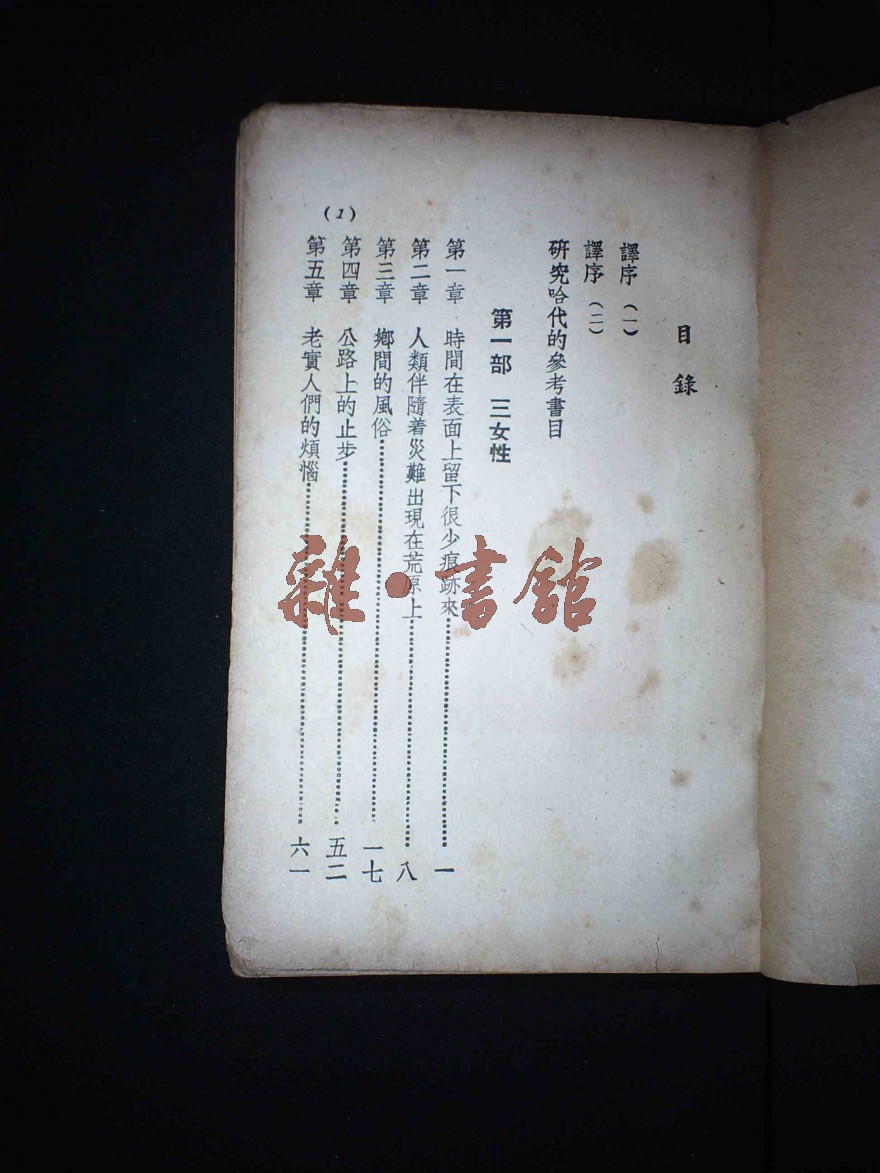 目錄
譯序（一）
譯序（二）
研究哈代的參考書目
第一部　三女性
第一章　時間在表面上留下很少痕跡來……一
第二章　人類伴隨着災難出現在荒原上……八
第三章　鄉間的風俗……一七
第四章　公路上的止步……五二
第五章　老實人們的煩惱……六一
(1)
雜·書館